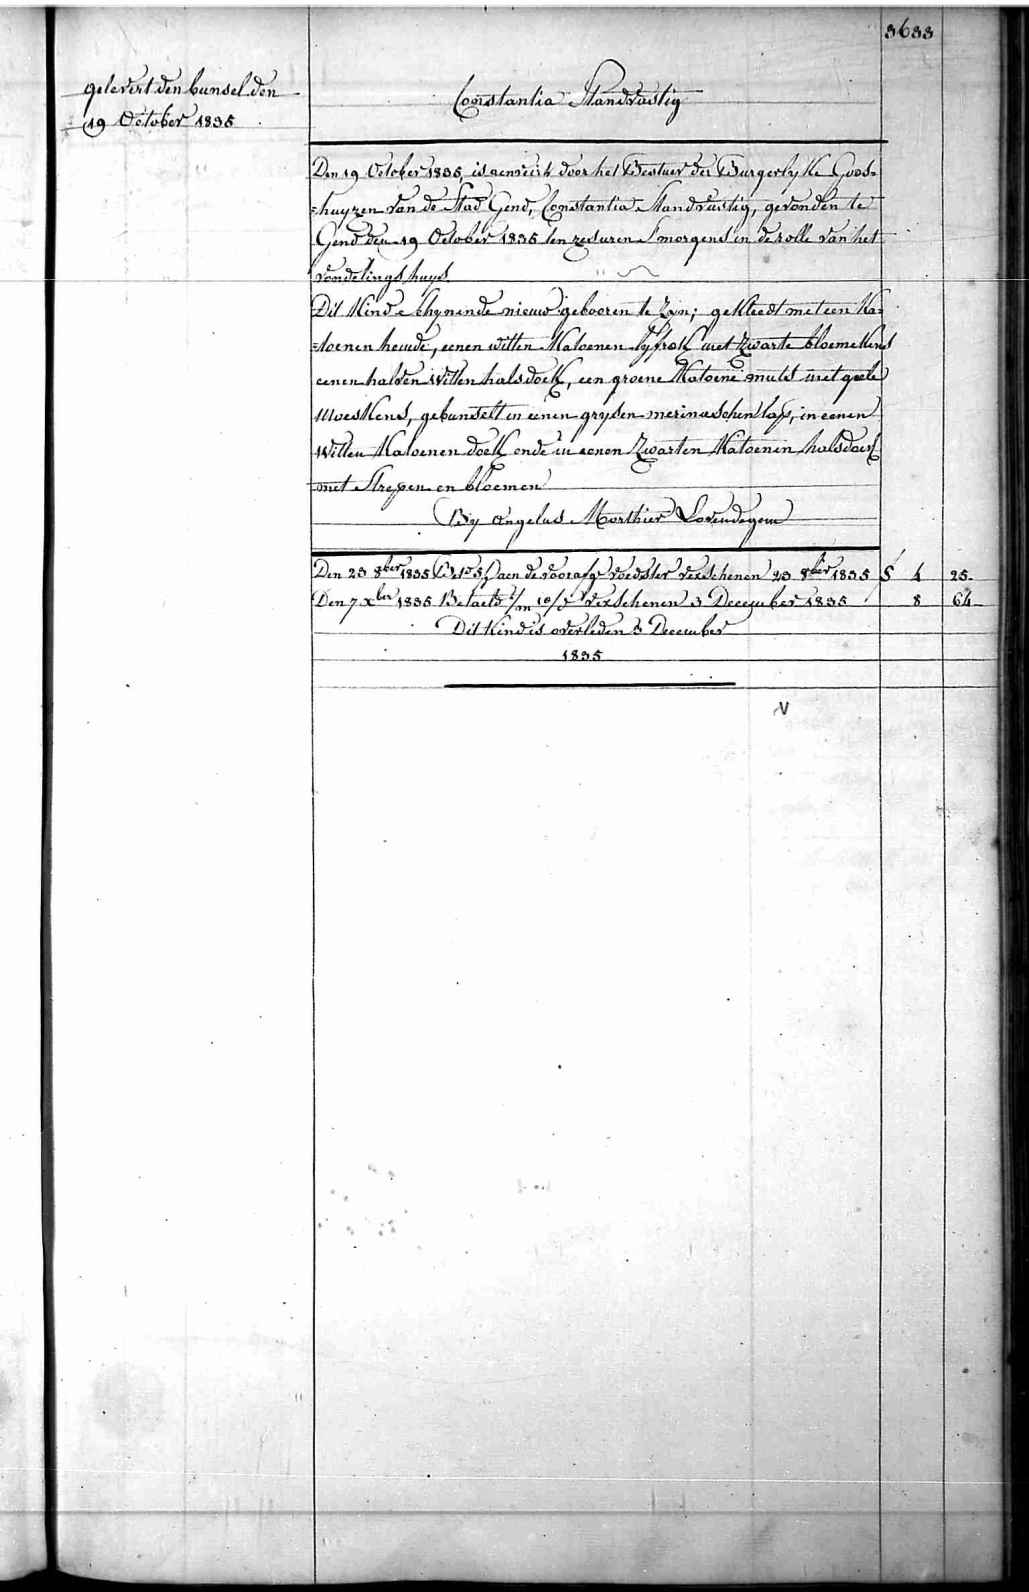 3633
gelevert den bunsel den
19 October 1835
Constantia Standvastig
Den 19 October 1835, is aenveirt door het Bestuer der Burgerlyke Gods-
=huyzen van de Stad Gend, Constantia Standvastig, gevonden te
Gend den 19 October 1835 ten zes uren Smorgens in de rolle van het
vondelings huys.
Dit Kind schynende nieuw gebooren te Zyn; gekleedt met een Ka=
=toenen hemde, eenen witten Katoenen lyfrok met Zwarte bloemekens
eenen halven Witten halsdoek, een groene Katoene muts met geele
Moeskens, gebunselt in eenen grysen merinoschen lap, in eenen
Witten Katoenen doek ende in eenen Zwarten Katoenen halsdoek
met Strepen en bloemen
By Angelus Morthier Lovendegem
Den 23 8ber 1835 aen de voorafge voedster verschenen 23 8ber 1835 4 25
Den 7 Xber 1835 Betaelt verschenen 3 December 1835 8 64
Dit Kind is overleden 3 December
1835
V